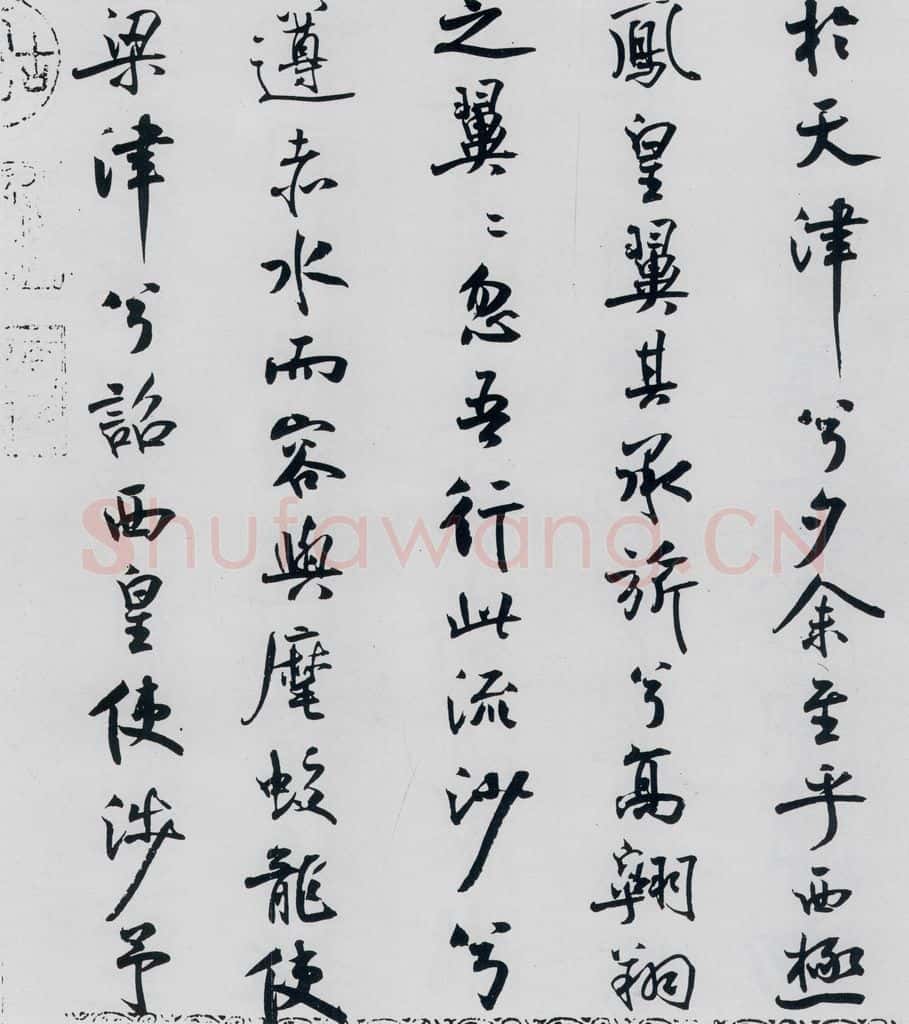 於天津兮夕余至乎西極
鳳皇翼其承旂兮高翱翔
之翼〻忽吾行此流沙兮
遵赤水而容與麾蛟龍使
梁津兮詔西皇使涉予
Shufawang.CN